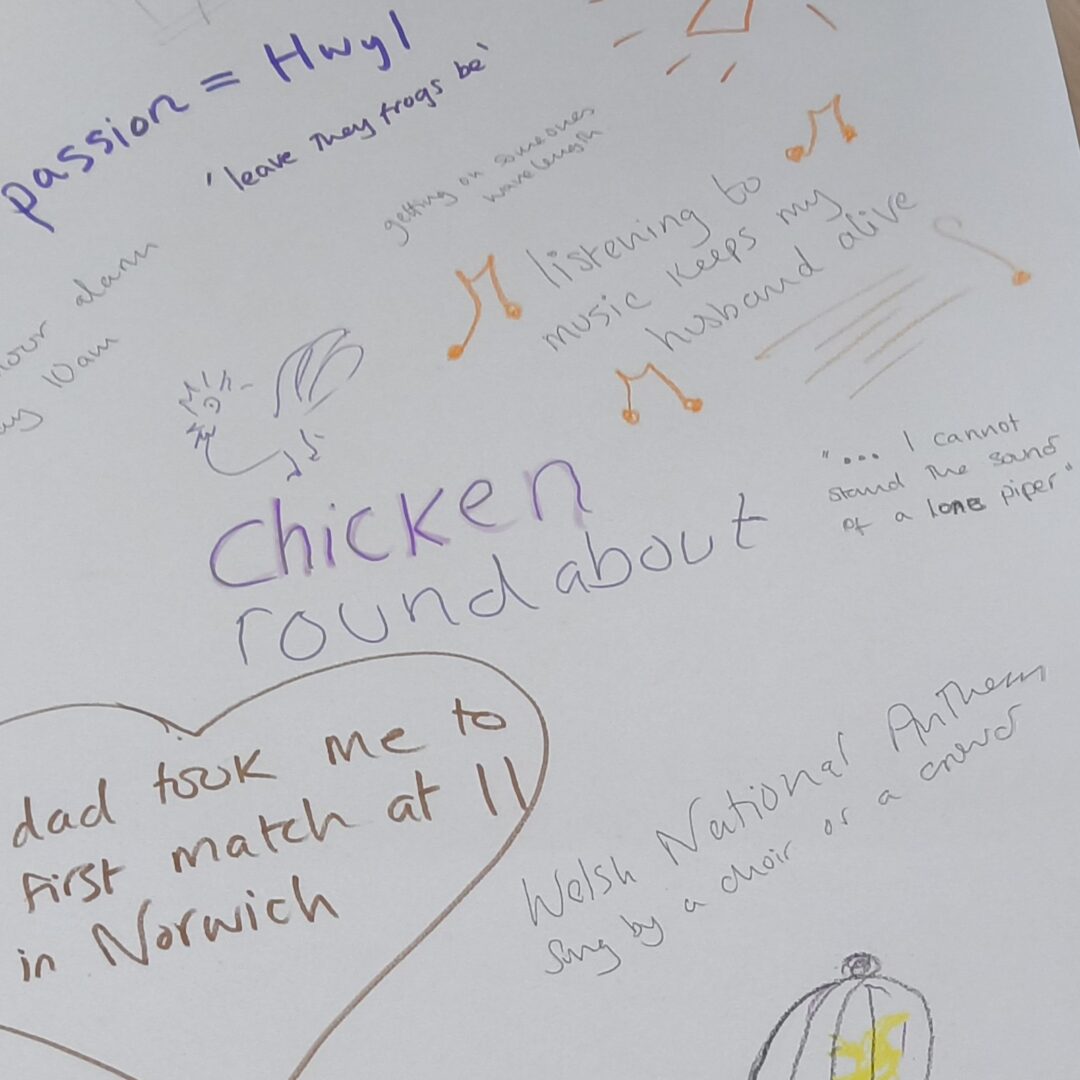 passion = Hwyl
'leave They frogs be'
getting on someones
wavelength
listening to
music keeps my
husband alive
alarm
10am
"... I cannot
stand The sound
of a lone piper"
Chicken
roundabout
dad took me to
first match at 11
in Norwich
Welsh National AnThem
sung by a choir or a crowd